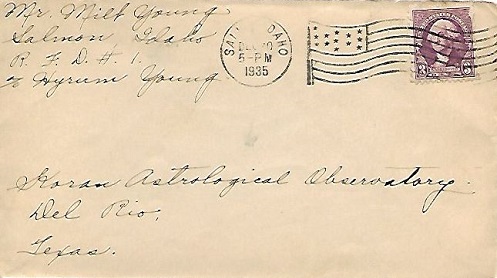 Mr. Milt Young
Salmon Idaho
R. F. D. # 1.
% Hyrum Young
IDAHO
5-PM
1935
3 3
Koran Astrological Observatory.
Del Rio,
Texas.